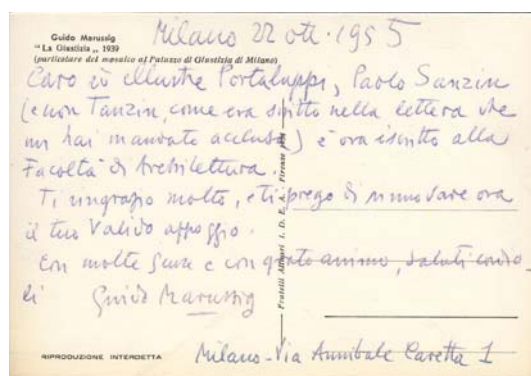 Guido Marussig
"La Giustizia,, 1939
(particolare del mosaico al Palazzo di Giustizia di Milano)
Milano 22 ott. 1955
Caro ed illustre Portaluppi, Paolo Sanzin
(e non Tanzin, come era scritto nella lettera che
mi hai mandato acclusa) è ora iscritto alla
Facoltà di Architettura.
Ti ringrazio molto, e ti prego di rinnovare ora
il tuo valido appoggio.
Con molte scuse e con grato animo, saluti cordia
li Guido Marussig
Fratelli Alinari I. D. E. A. Firenze
RIPRODUZIONE INTERDETTA
Milano - Via Annibale Caretta 1